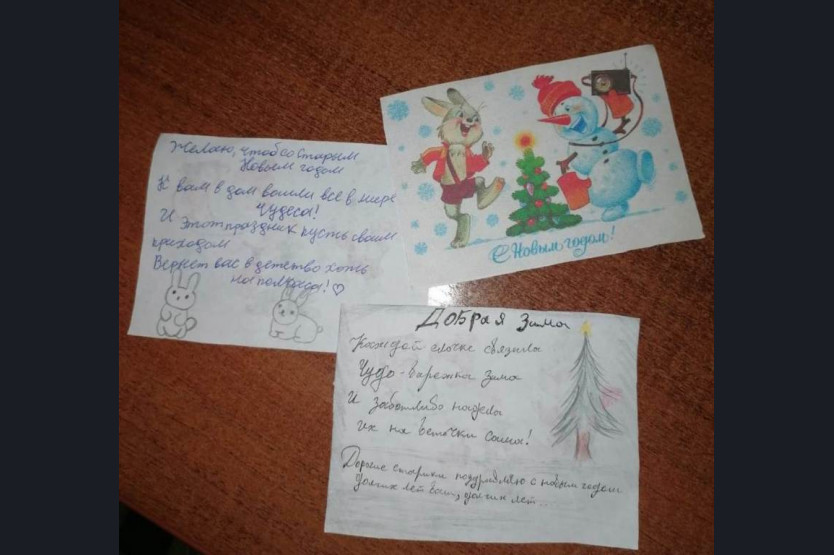 Желаю, чтоб со Старым
Новым годом
К вам в дом вошли все в мире
Чудеса!
И Этот праздник пусть своим
приходом
Вернет вас в детство хоть
на полчаса!♡
С Новым годом!
Добрая Зима
Каждой елочке связала
Чудо-варежки Зима
И заботливо надела
их на веточки сама!
старики поздравляю с новым годом
Долгих лет вам, долгих лет...